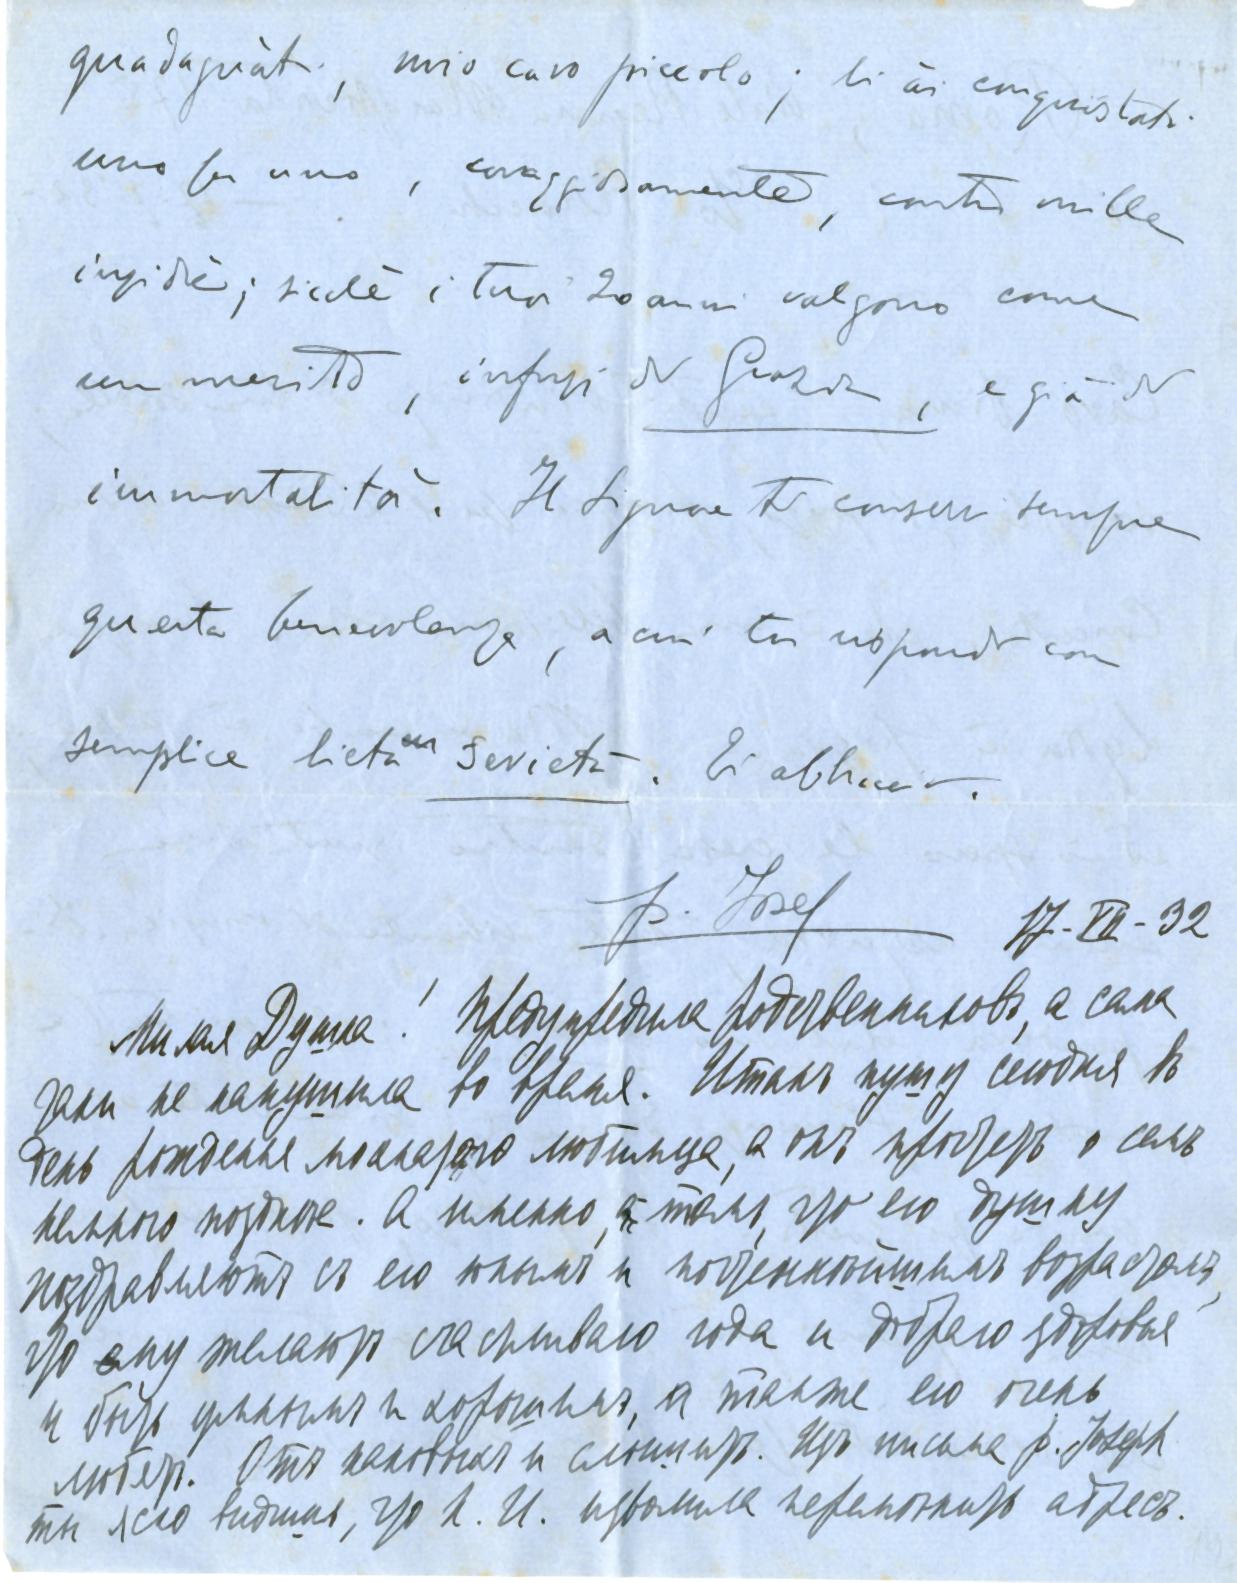 guadagnàti, mio caro piccolo; li ài conquistati
uno per uno, coraggiosamente, contro mille
insidie; sicchè i tuoi 20 anni valgono come
un merito, infusi di Grazia, e già di
immortalità. Il Signore ti conservi sempre
questa benevolenza, a cui tu rispondi con
semplice lieta serietà. Ti abbraccio.
p. Josef
17-VII-32
Милая Душка! Предупредила родственниковъ, а сама
таки не написала во время. Итакъ пишу сегодня въ
день рожденье любимца, а онъ прочтетъ о семъ
немного позднѣе. А именно, о томъ, что его душку
поздравляютъ съ его юнымъ и почтеннѣйшимъ возрастомъ,
что ему желаютъ счастливаго года и добраго здоровья
и быть умнымъ и хорошимъ, а также его очень
любятъ. Отъ каковыхъ и слышитъ. Изъ письма p. Joseph
ты ясно видишь, что Л. И. изволила перепутать адресъ.